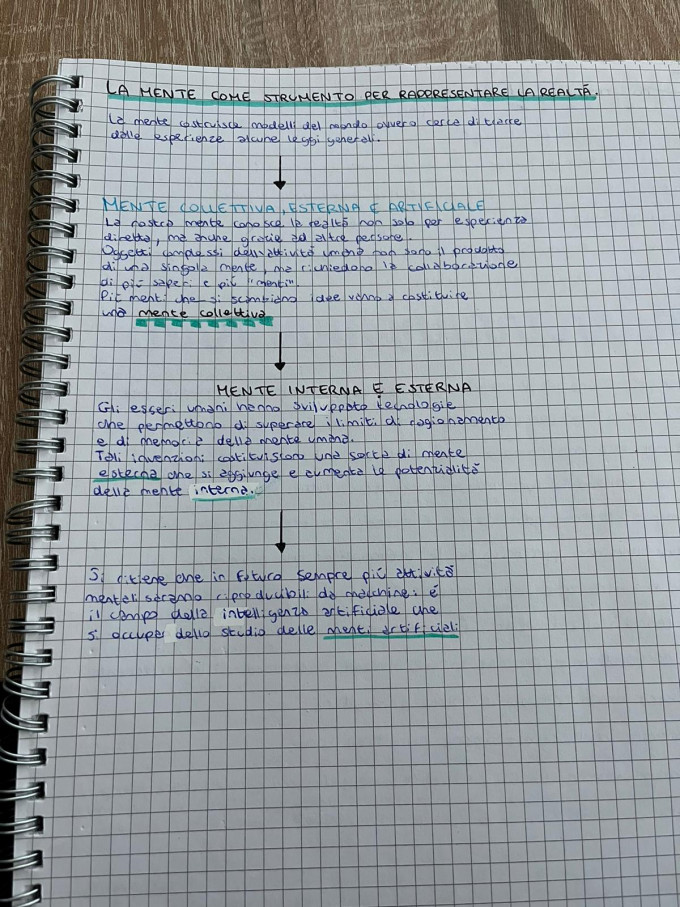 LA MENTE COME STRUMENTO PER RAPPRESENTARE LA REALTÀ.
La mente costruisce modelli del mondo ovvero cerca di trarre
dalle esperienze alcune leggi generali.
MENTE COLLETTIVA, ESTERNA E ARTIFICIALE
La nostra mente conosce la realtà non solo per esperienza
diretta, ma anche grazie ad altre persone.
Oggetti complessi dell'attività umana non sono il prodotto
di una singola mente, ma richiedono la collaborazione
di più saperi e più "menti".
Più menti che si scambiano idee vanno a costituire
una mente collettiva
MENTE INTERNA E ESTERNA
Gli esseri umani hanno sviluppato tecnologie
che permettono di superare i limiti di ragionamento
e di memoria della mente umana.
Tali invenzioni costituiscono una sorta di mente
esterna che si aggiunge e aumenta le potenzialità
della mente interna.
Si ritiene che in futuro sempre più attività
mentali saranno riproducibili da macchine: è
il campo della intelligenza artificiale che
si occupa dello studio delle menti artificiali